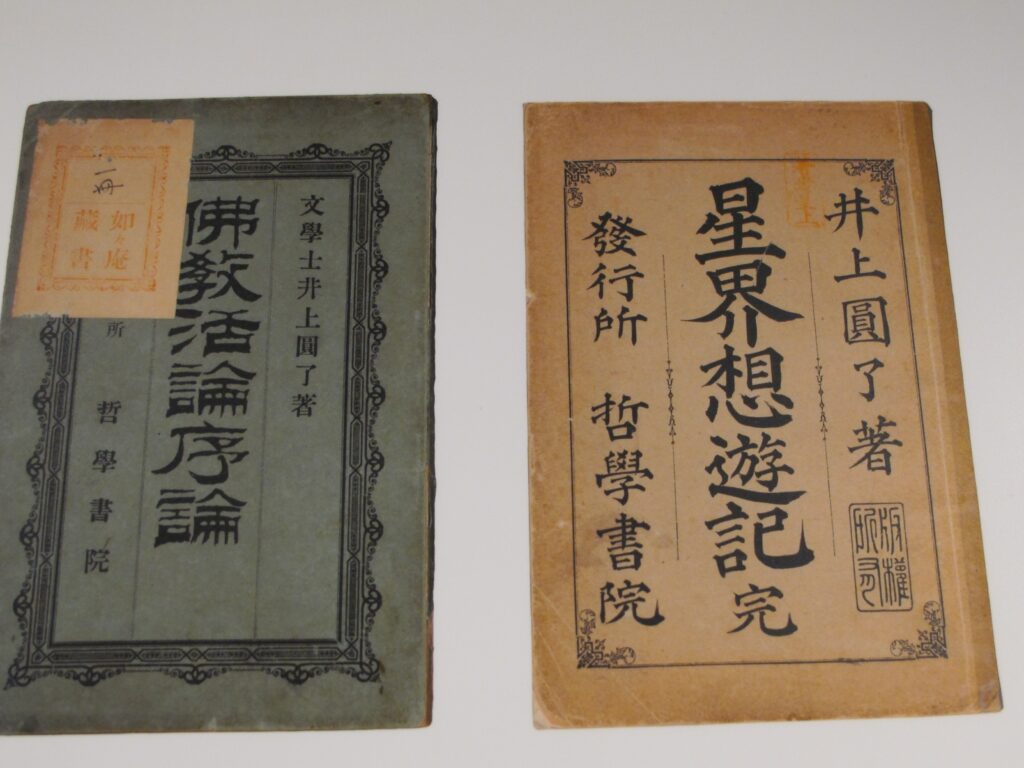 一冊
如々庵
藏書
文學士井上圓了著
佛教活論序論
所 哲學書院
井上圓了著
版權所有
星界想遊記 完
發行所 哲學書院